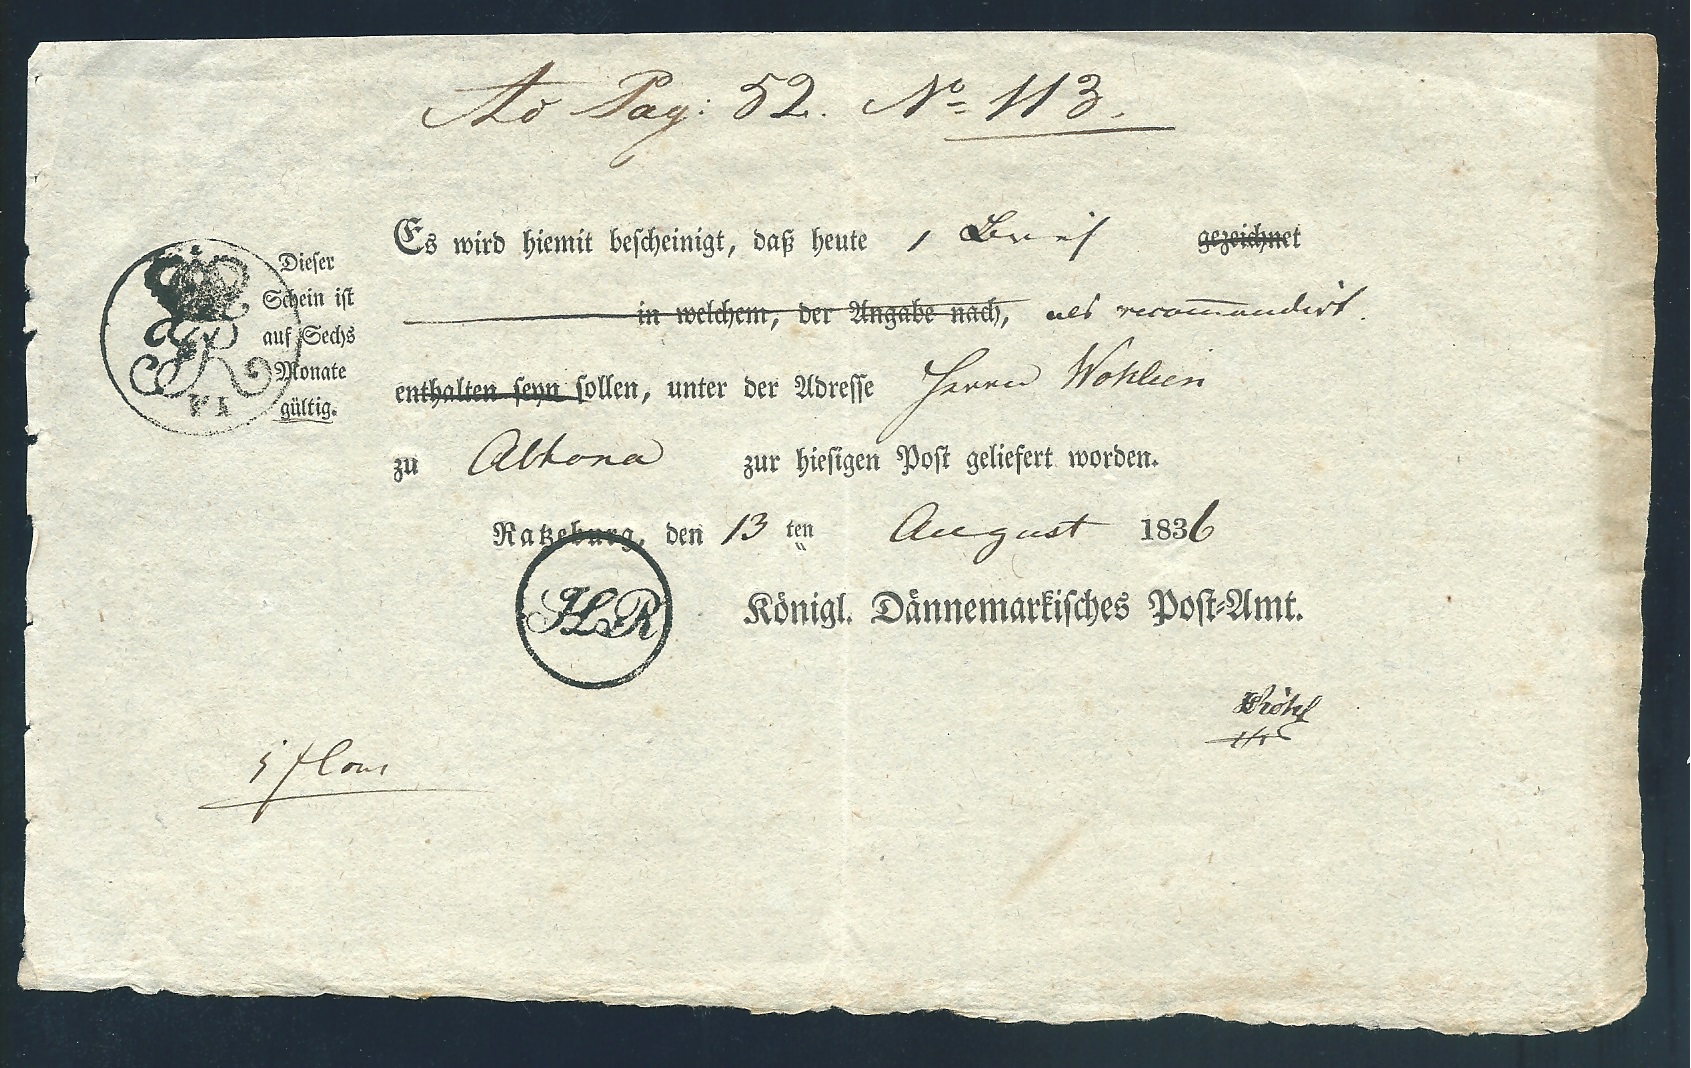 Ao Pag: 52. No 113.
Es wird hiemit bescheinigt, daß heute 1 Brief gezeichnet
in welchem, der Angabe nach, als recommandirt.
enthalten seyn sollen, unter der Adresse Herrn Wohlien
zu Altona zur hiesigen Post geliefert worden.
Ratzeburg, den 13 ten August 1836
Königl. Dännemarkisches Post-Amt.
Dieser
Schein ist
auf Sechs
Monate
gültig.
FR
VI
HLR